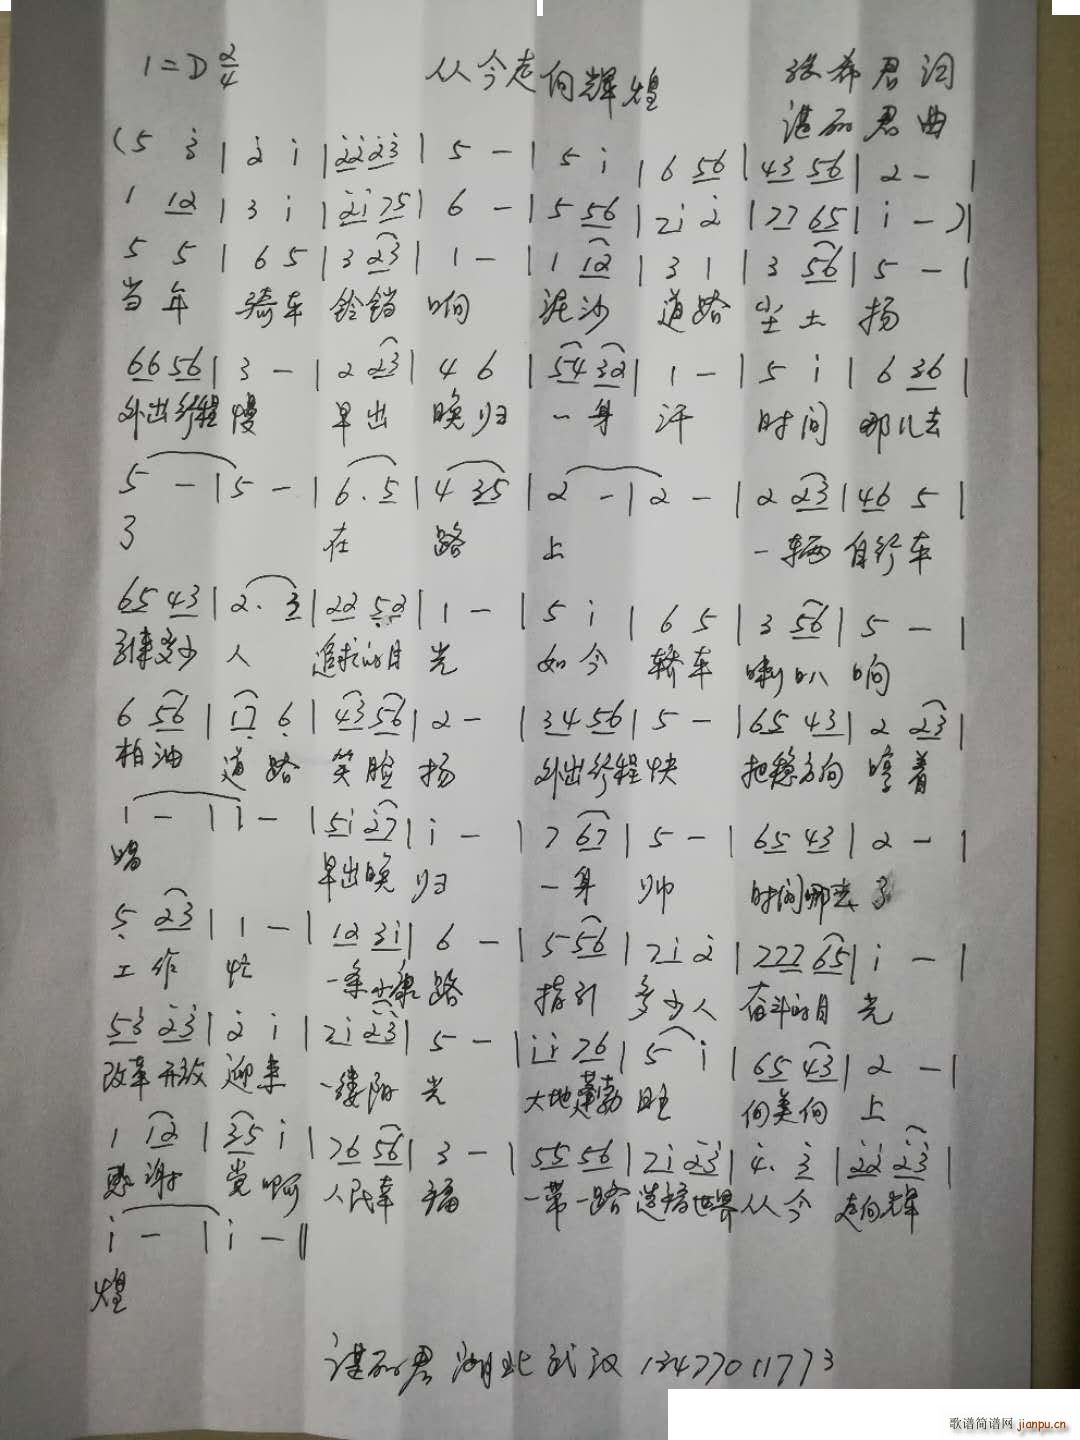 1=D 2/4 从今走向辉煌 张希君词
谌丽君曲
(5 3̇ | 2̇ i | 2̇2̇ 2̇3̇ | 5 - | 5 i | 6 56 | 43 56 | 2 - |
1 12 | 3 i | 2̇i 75 | 6 - | 5 56 | 7i 2̇ | 77 65 | i - )|
5 5 | 6 5 | 3 23 | 1 - | 1 12 | 3 1 | 3 56 | 5 - |
当年 骑车 铃铛 响 泥沙 道路 尘土 扬
66 56 | 3 - | 2 23 | 4 6 | 54 32 | 1 - | 5 i | 6 36 |
外出行程 慢 早出 晚归 一身 汗 时间 哪儿去
5 - | 5 - | 6. 5 | 4 35 | 2 - | 2 - | 2 23 | 46 5 |
了 在 路 上 一辆 自行车
65 43 | 2. 3 | 22 5̣2 | 1 - | 5 i | 6 5 | 3 56 | 5 - |
引来多少 人 追求的目 光 如今 轿车 喇叭 响
6 56 | 17̣ 6̣ | 43 56 | 2 - | 34 56 | 5 - | 65 43 | 2 23 |
柏油 道路 笑脸 扬 外出行程 快 把稳方向 哼着
1 - | 1 - | 5i 2̇7 | i - | 7 67 | 5 - | 65 43 | 2 - |
唱 早出晚 归 一身 帅 时间哪去 了
5̣ 23 | 1 - | 12 3i | 6 - | 5 56 | 7i 2̇ | 777 65 | i - |
工作 忙 一条小康 路 指引 多少人 奋斗的目 光
53̇ 2̇3̇ | 2̇ i | 7i 2̇3̇ | 5 - | ii 76 | 5 i | 65 43 | 2 - |
改革开放 迎来 一缕阳 光 大地蓬勃 旺 向美向 上
1 12 | 35 i | 76 56 | 3 - | 55 56 | 7i 2̇3̇ | 4̇. 3̇ | 2̇2̇ 2̇3̇ |
感谢 党啊 人民幸 福 一带一路 造福世界 从今 走向辉
i - | i - ‖
煌
谌丽君 湖北武汉 13477011773
歌谱简谱网 jianpu.cn